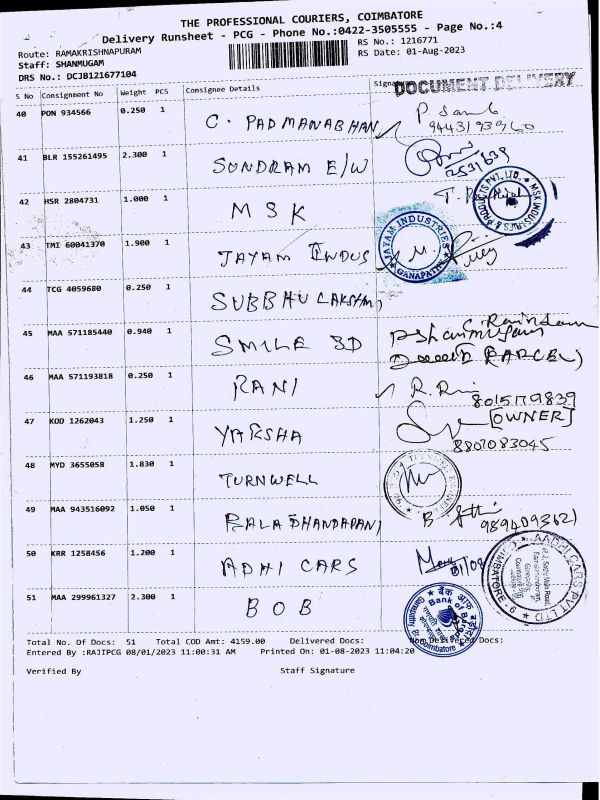 THE PROFESSIONAL COURIERS, COIMBATORE
Delivery Runsheet - PCG - Phone No.:0422-3505555 - Page No.:4
Route: RAMAKRISHNAPURAM RS No.: 1216771
Staff: SHANMUGAM RS Date: 01-Aug-2023
DRS No.: DCJB121677104
S No Consignment No Weight PCS Consignee Details
DOCUMENT DELIVERY
40 PON 934566 0.250 1 C. PADMANABHAN
41 BLR 155261495 2.300 1 SUNDRAM E/W
2531639
42 HSR 2804731 1.000 1 M S K
MSK INDUSTRIES & PRODUCTS PVT. LTD.
43 TMI 60041370 1.900 1 JAYAM INDUS
JAYAM INDUSTRIES GANAPATHY
44 TCG 4059680 0.250 1 SUBBHU LAKSHMI
45 MAA 571185440 0.940 1 SMILE 3D
46 MAA 571193818 0.250 1 RANI
8015179839
47 KOD 1262043 1.250 1 YAKSHA [OWNER]
8807083045
48 MYD 3655058 1.830 1 TURNWELL
49 MAA 943516092 1.050 1 BALA DHANDAPANI
9894093621
50 KRR 1258456 1.200 1 ADHI CARS
AADHI CARS PVT LTD COIMBATORE - 6
51 MAA 299961327 2.300 1 B O B
बैंक ऑफ़
Bank of Baroda
Ganapathy Br. Coimbatore
Total No. Of Docs: 51 Total COD Amt: 4159.00 Delivered Docs: Non Delivered Docs:
Entered By :RAJIPCG 08/01/2023 11:00:31 AM Printed On: 01-08-2023 11:04:20
Verified By Staff Signature